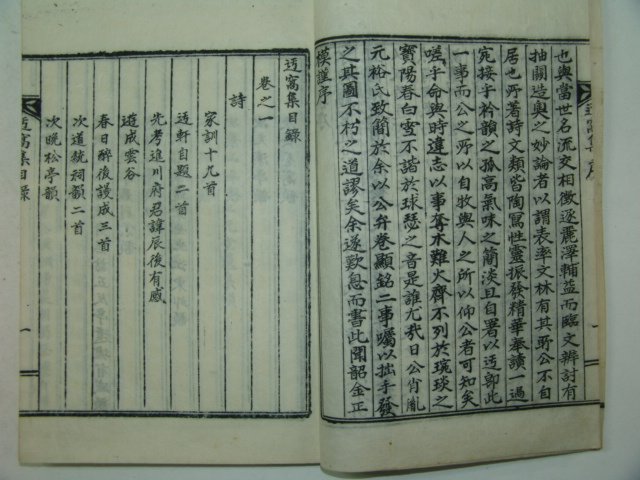 迃窩集序
也與當世名流交相徵逐麗澤輔益而臨文辨討有
抽關造奧之妙論者以謂表率文林有其所公不自
居也所著詩文類皆陶寫性靈振發精華奉讀一過
宛接乎衿韻之孤高氣味之簡淡且自署以迃卽此
一事而公之所以自牧與人之所以仰公者可知矣
嗟乎命與時違志以事奪木難火齊不列於琬琰之
寶陽春白雪不諧於球瑟之音是誰尤哉日公肖胤
元裕氏致簡於余以公弁卷顯銘二事囑以拙手發
之其圖不朽之道謬矣余遂歎息而書此聞韶金正
模謹序
迃窩集目錄
卷之一
詩
家訓十九首
迃軒自題二首
先考進川府君諱辰後有感
遊成雲谷
春日醉後謾成三首
次道統祠韻二首
次晩松亭韻
迃窩集目錄 一